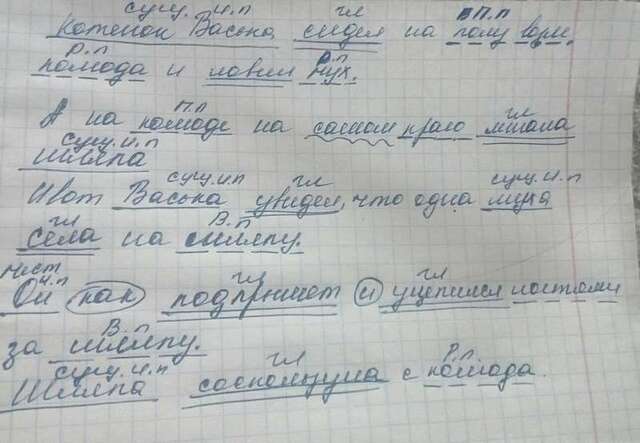 сущ. и.п гл П.п
Котенок Васька сидел на полу возле
Р.п Р.п
комода и ловил мух.
П.п гл
А на комоде на самом краю лежала
сущ. и.п
шляпа
сущ. и.п гл сущ. и.п
И вот Васька увидел, что одна муха
гл В.п
села на шляпу.
мест и.п гл гл
Он как подпрыгнет и уцепился когтями
В.п
за шляпу.
сущ. и.п гл Р.п
Шляпа соскользнула с комода.